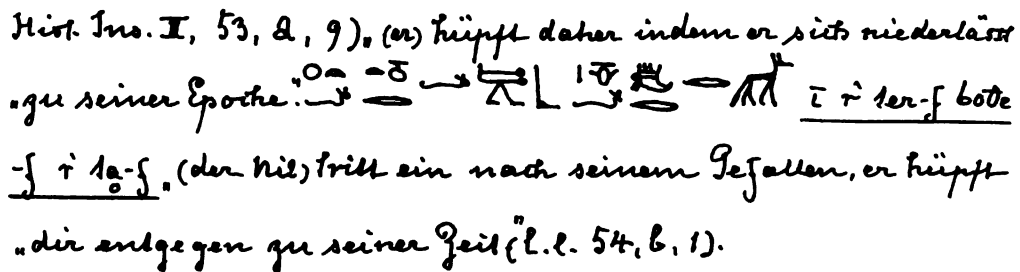 Hist. Ins. II, 53, a, 9). „(er) hüpft daher indem er sich niederlässt
„zu seiner Epoche.“ ī r ter-f bote
-f r ta-f „(der Nil) tritt ein nach seinem Gefallen, er hüpft
„dir entgegen zu seiner Zeit“ (l. l. 54, b, 1).